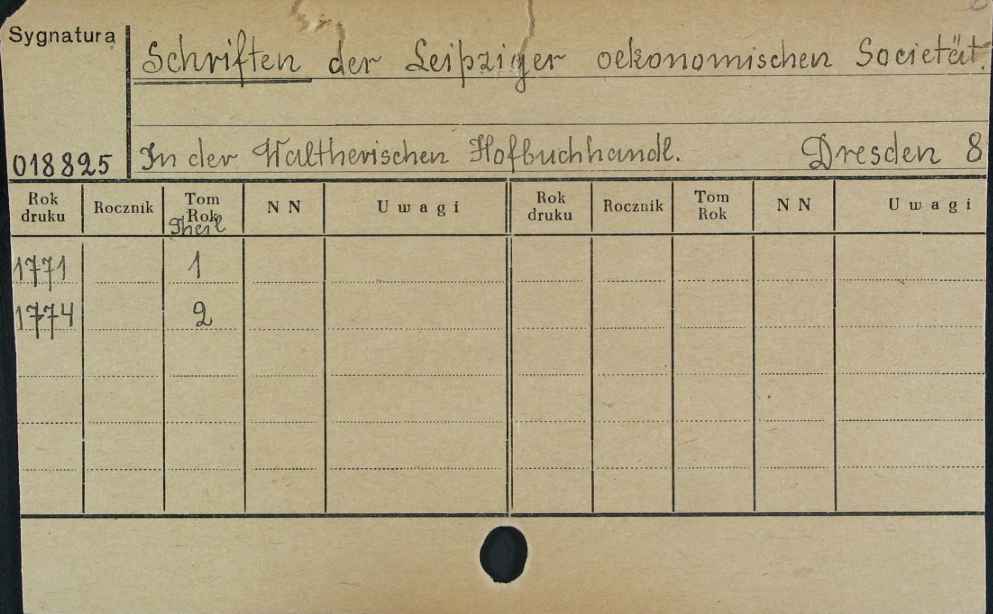 Sygnatura
Schriften der Leipziger oekonomischen Societät.
018825
In der Waltherischen Hofbuchhandl. Dresden 8
Rok druku Rocznik Tom Rok Theil NN Uwagi Rok druku Rocznik Tom Rok NN Uwagi
1771 1
1774 2